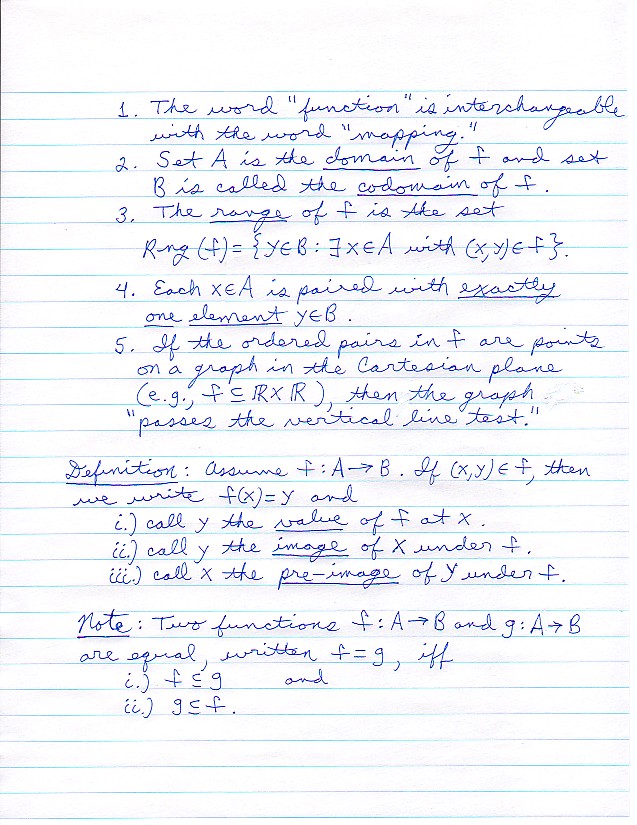 1. The word "function" is interchangeable
with the word "mapping."
2. Set A is the domain of f and set
B is called the codomain of f.
3. The range of f is the set
Rng (f) = {y∈B : ∃x∈A with (x,y)∈f}.
4. Each x∈A is paired with exactly
one element y∈B.
5. If the ordered pairs in f are points
on a graph in the Cartesian plane
(e.g., f ⊆ ℝ×ℝ), then the graph
"passes the vertical line test."
Definition: Assume f: A→B. If (x,y)∈f, then
we write f(x)=y and
i.) call y the value of f at x.
ii.) call y the image of x under f.
iii.) call x the pre-image of y under f.
Note: Two functions f: A→B and g: A→B
are equal, written f=g, iff
i.) f⊆g and
ii.) g⊆f.